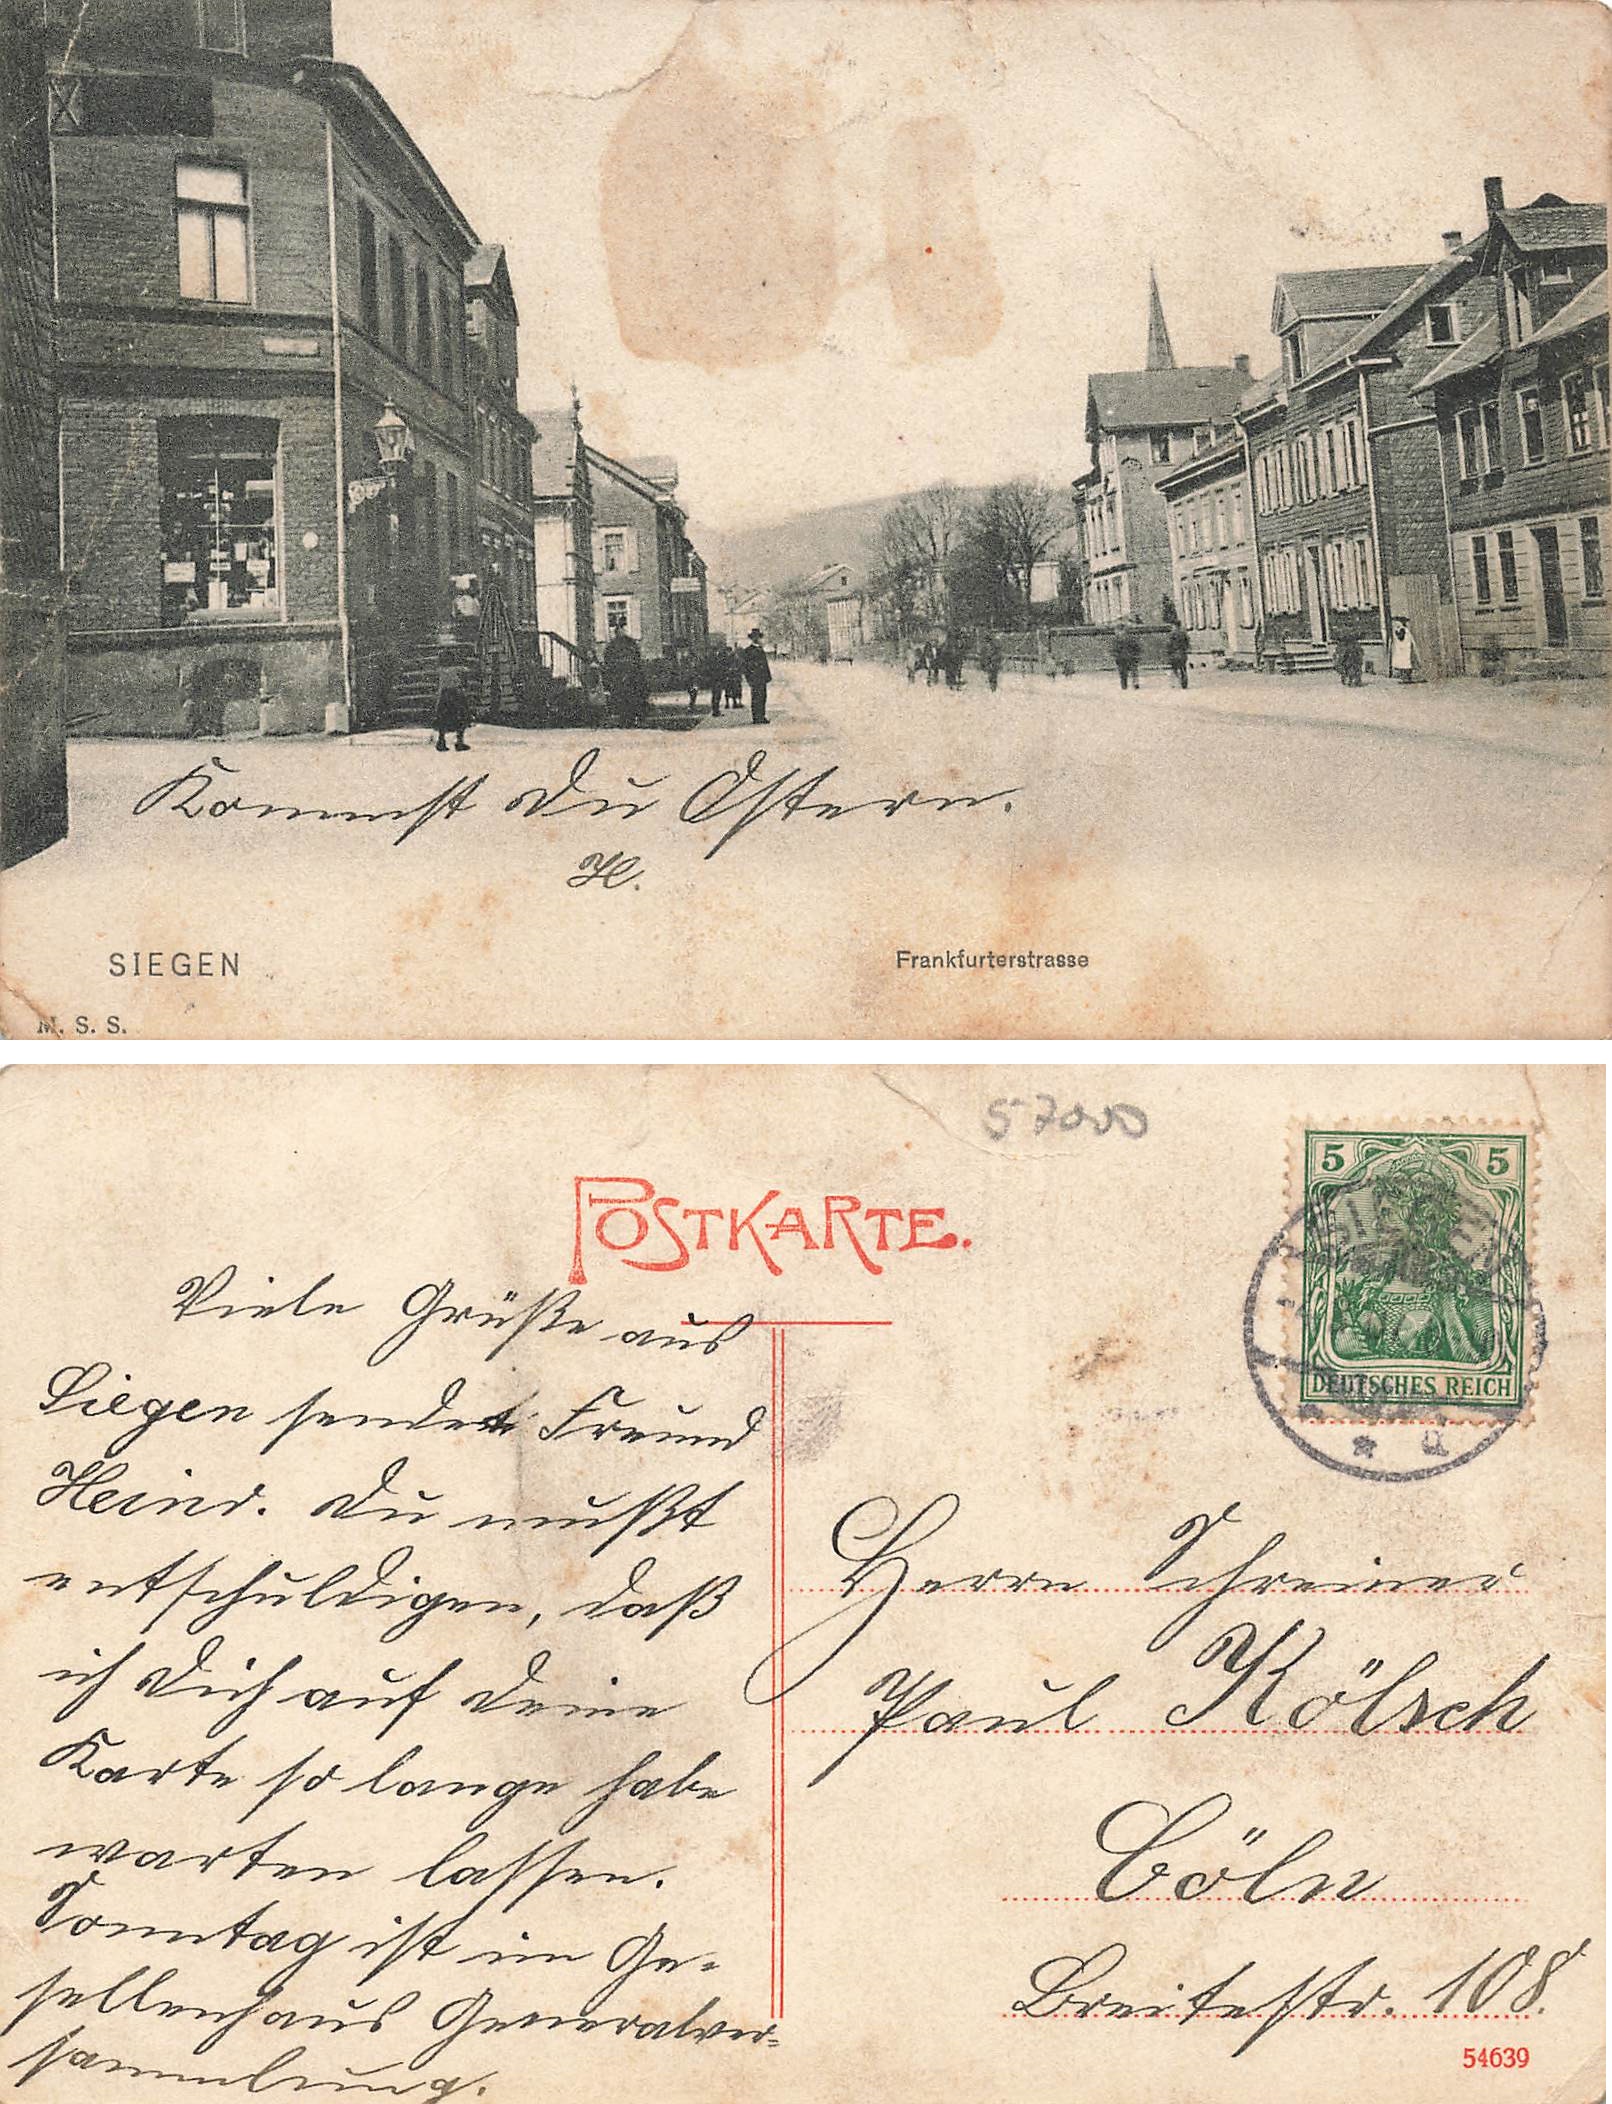 Kommst Du Ostern.
H.
SIEGEN
Frankfurterstrasse
M. S. S.
57000
POSTKARTE.
5 5
DEUTSCHES REICH
Viele Grüße aus
Siegen sendet Freund
Heinr. Du mußt
entschuldigen, daß
ich Dich auf Deine
Karte so lange habe
warten lassen.
Sonntag ist im Ge-
sellenhaus Generalver-
sammlung.
Herrn Schreiner
Paul Kölsch
Cöln
Breitestr. 108.
54639